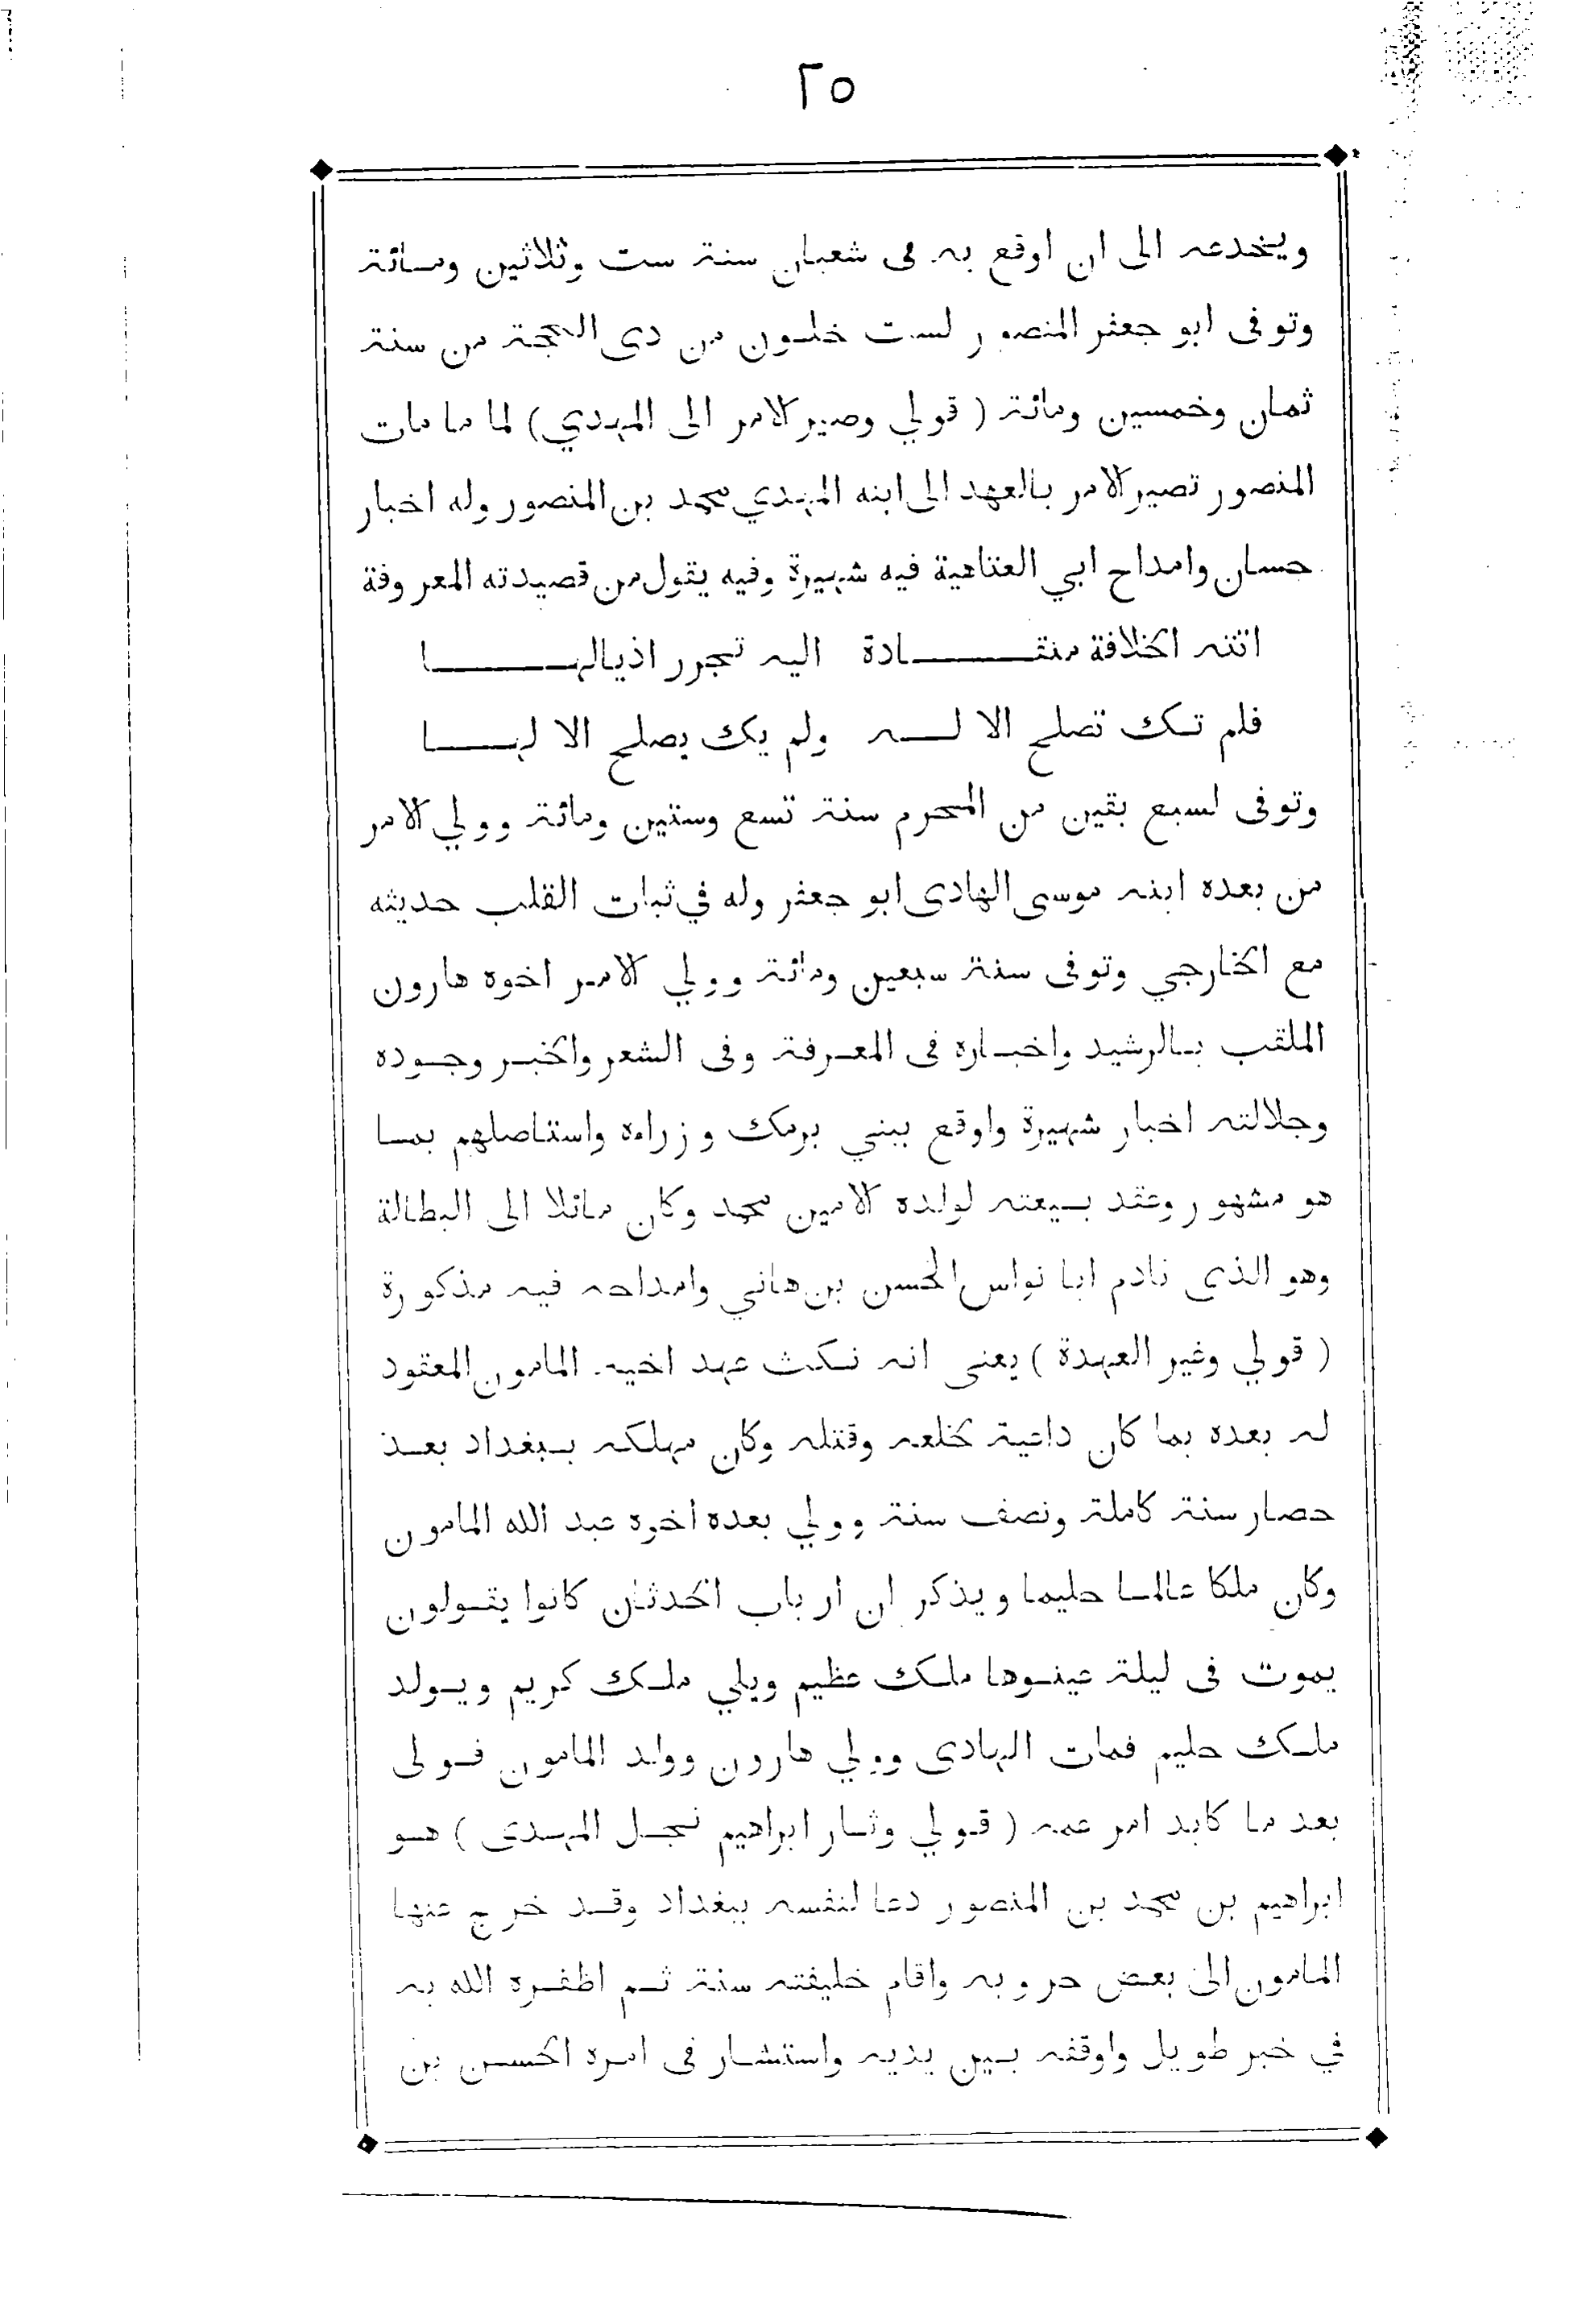 ٢٥
ويخدعه الى ان اوقع به فى شعبان سنة ست وثلاثين ومائة
وتوفى ابو جعفر المنصور لست خلون من ذى الحجة من سنة
ثمان وخمسين ومائة ( قولي وصير الامر الى المهدي ) لما ما مات
المنصور تصير الامر بالعهد الى ابنه المهدي محمد بن المنصور وله اخبار
حسان وامداح ابي العتاهية فيه شهيرة وفيه يقول من قصيدته المعروفة
اتته الخلافة منقادة اليه تجرر اذيالها
فلم تك تصلح الا له ولم يك يصلح الا لها
وتوفى لسبع بقين من المحرم سنة تسع وستين ومائة وولي الامر
من بعده ابنه موسى الهادى ابو جعفر وله في ثبات القلب حديثه
مع الخارجي وتوفى سنة سبعين ومائة وولي الامر اخوه هارون
الملقب بالرشيد واخباره فى المعرفة وفى الشعر والخبر وجوده
وجلالته اخبار شهيرة واوقع ببني برمك وزراءه واستاصلهم بما
هو مشهور وعقد بيعته لولده الامين محمد وكان مائلا الى البطالة
وهو الذى نادم ابا نواس الحسن بن هاني وامداحه فيه مذكورة
( قولي وغير العهدة ) يعنى انه نكث عهد اخيه المامون المعقود
له بعده بما كان داعية لخلعه وقتله وكان مهلكه ببغداد بعد
حصار سنة كاملة ونصف سنة وولي بعده اخوه عبد الله المامون
وكان ملكا عالما حليما ويذكر ان ارباب الحدثان كانوا يقولون
يموت فى ليلة عينوها ملك عظيم ويلي ملك كريم ويولد
ملك حليم فمات الهادى وولي هارون وولد المامون فولى
بعد ما كابد امر عمه ( قولي وثار ابراهيم نجل المهدى ) هو
ابراهيم بن محمد بن المنصور دعا لنفسه ببغداد وقد خرج عنها
المامون الى بعض حروبه واقام خليفته سنة ثم اظفره الله به
في خبر طويل واوقفه بين يديه واستشار فى امره الحسن بن